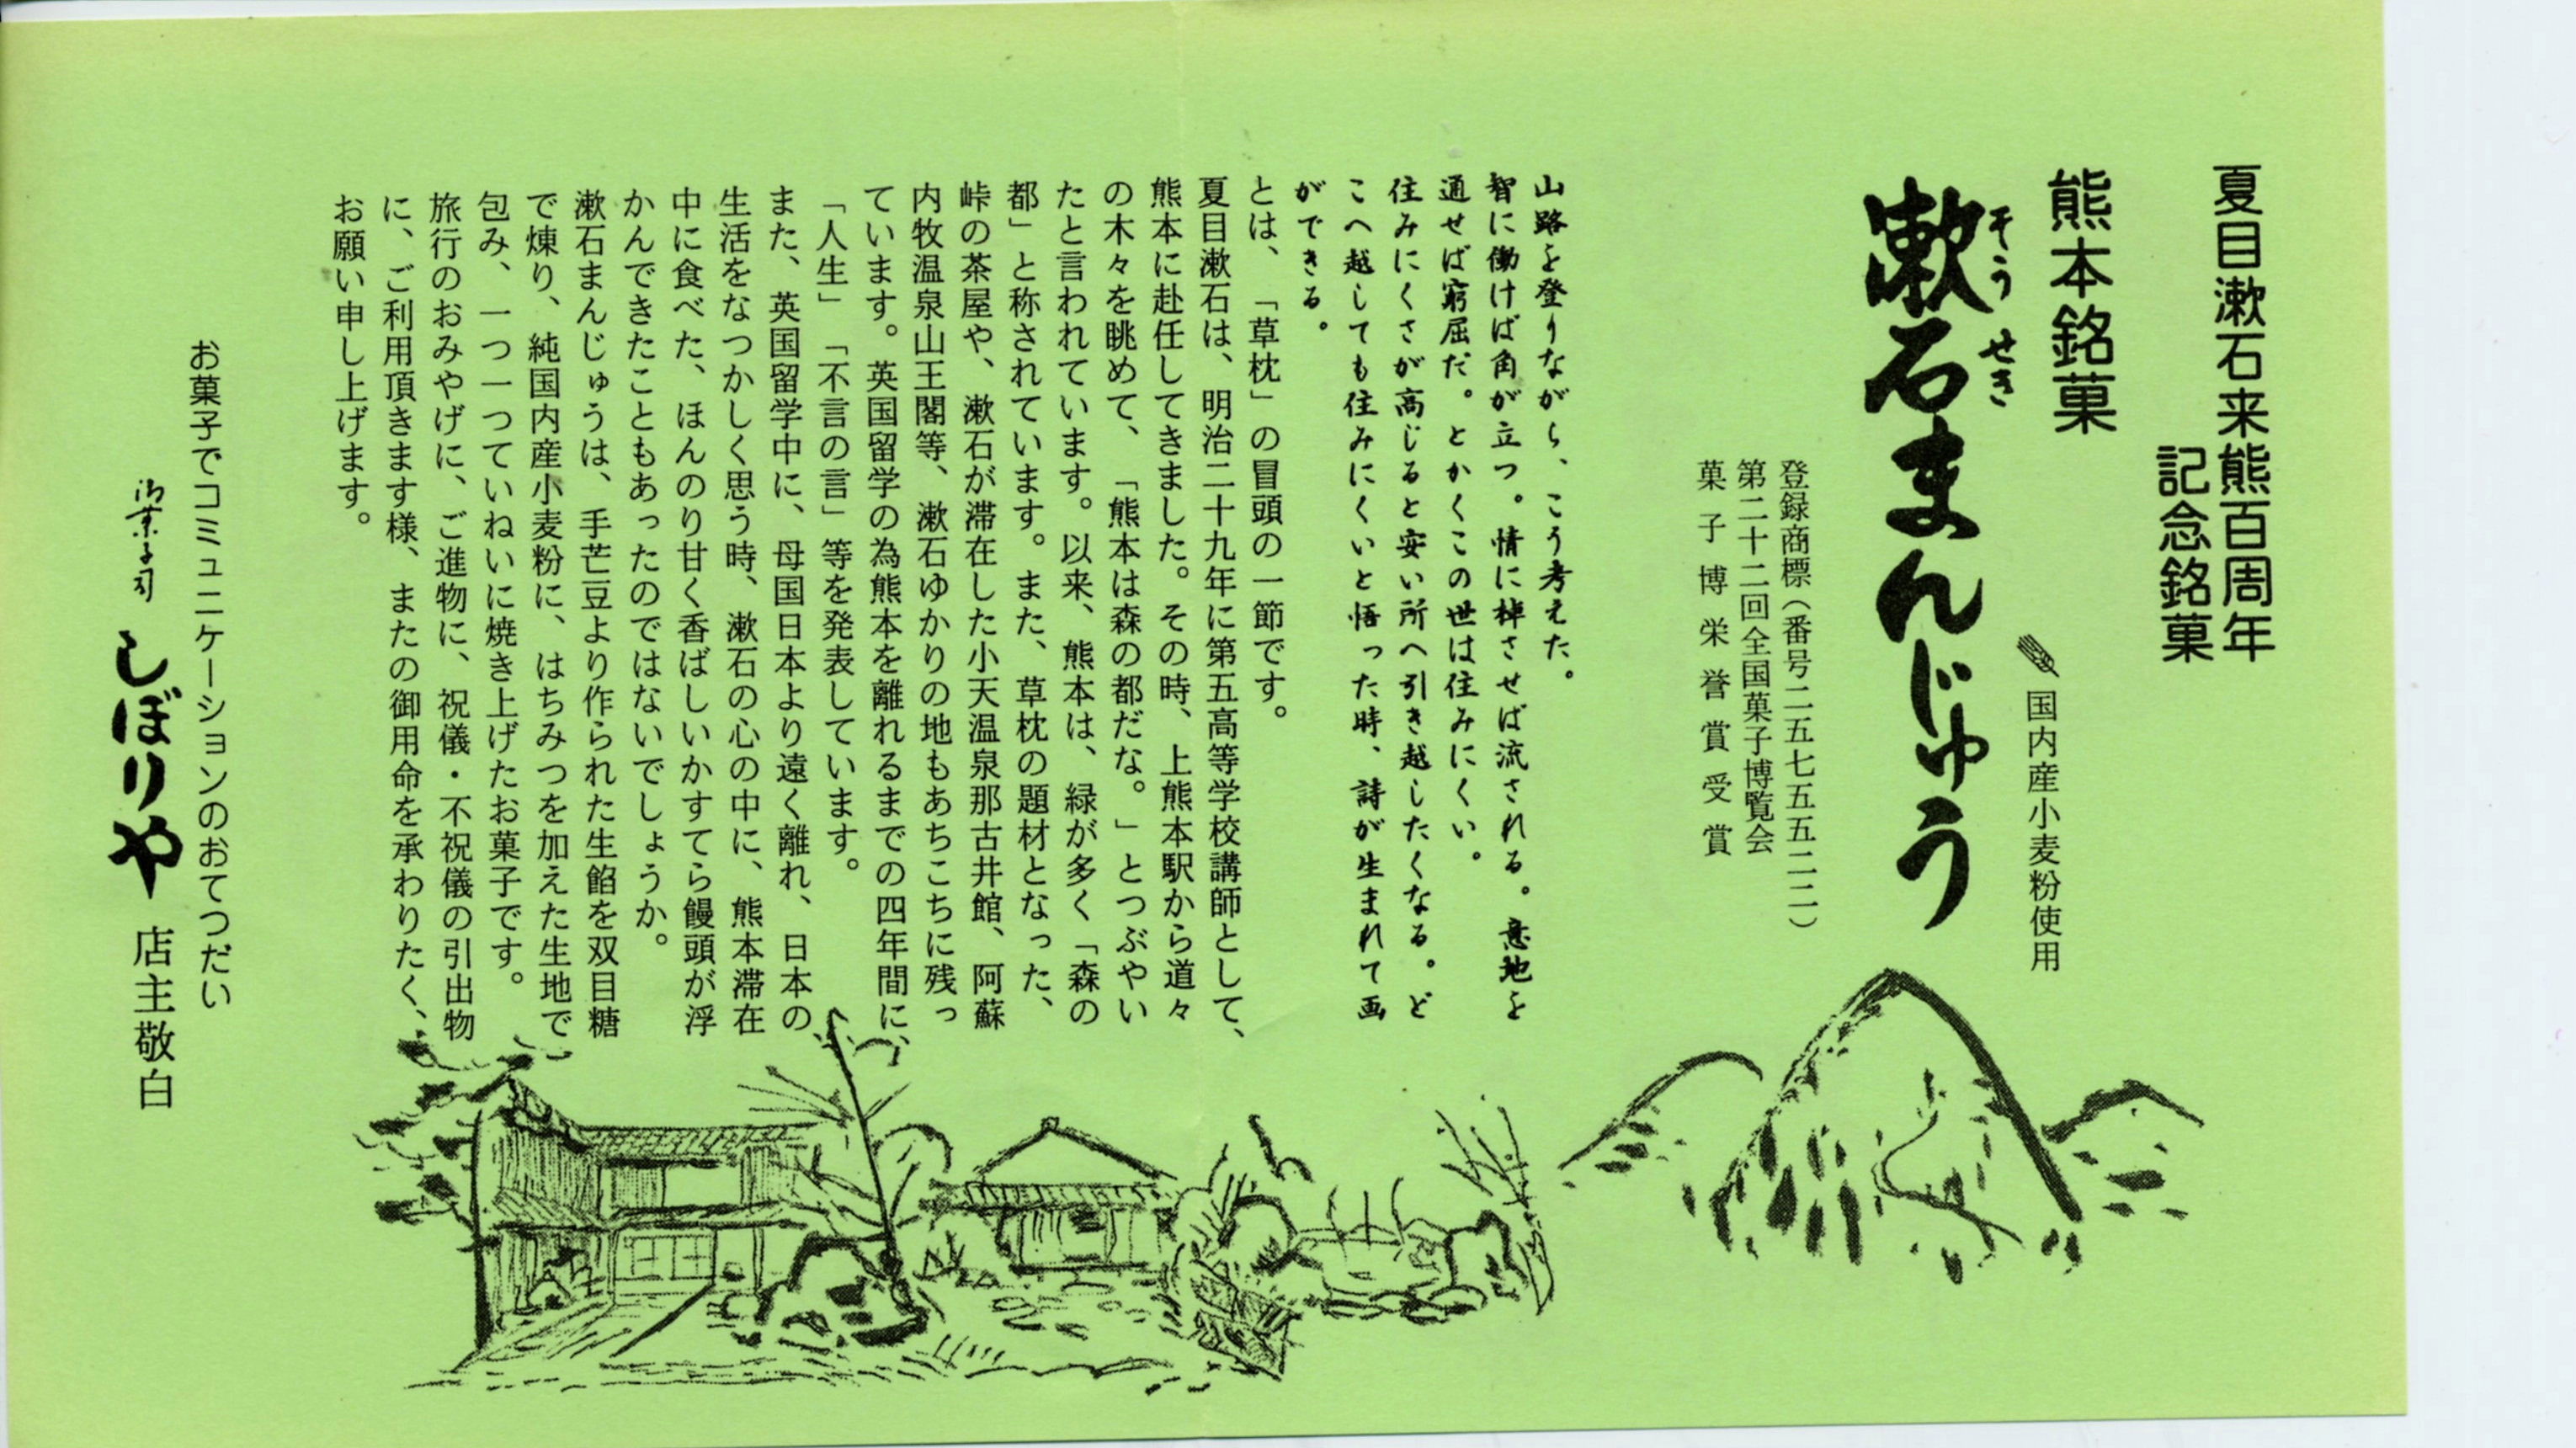 夏目漱石来熊百周年
記念銘菓
熊本銘菓
国内産小麦粉使用
そうせき
漱石まんじゅう
登録商標（番号二五七五五二二）
第二十二回全国菓子博覧会
菓子博栄誉賞受賞
山路を登りながら、こう考えた。
智に働けば角が立つ。情に棹させば流される。意地を
通せば窮屈だ。とかくこの世は住みにくい。
住みにくさが高じると安い所へ引き越したくなる。ど
こへ越しても住みにくいと悟った時、詩が生まれて画
ができる。
とは、「草枕」の冒頭の一節です。
夏目漱石は、明治二十九年に第五高等学校講師として、
熊本に赴任してきました。その時、上熊本駅から道々
の木々を眺めて、「熊本は森の都だな。」とつぶやい
たと言われています。以来、熊本は、緑が多く「森の
都」と称されています。また、草枕の題材となった、
峠の茶屋や、漱石が滞在した小天温泉那古井館、阿蘇
内牧温泉山王閣等、漱石ゆかりの地もあちこちに残っ
ています。英国留学の為熊本を離れるまでの四年間に、
「人生」「不言の言」等を発表しています。
また、英国留学中に、母国日本より遠く離れ、日本の
生活をなつかしく思う時、漱石の心の中に、熊本滞在
中に食べた、ほんのり甘く香ばしいかすてら饅頭が浮
かんできたこともあったのではないでしょうか。
漱石まんじゅうは、手芒豆より作られた生餡を双目糖
で煉り、純国内産小麦粉に、はちみつを加えた生地で
包み、一つ一つていねいに焼き上げたお菓子です。
旅行のおみやげに、ご進物に、祝儀・不祝儀の引出物
に、ご利用頂きます様、またの御用命を承わりたく、
お願い申し上げます。
お菓子でコミュニケーションのおてつだい
御菓子司 しぼりや 店主敬白